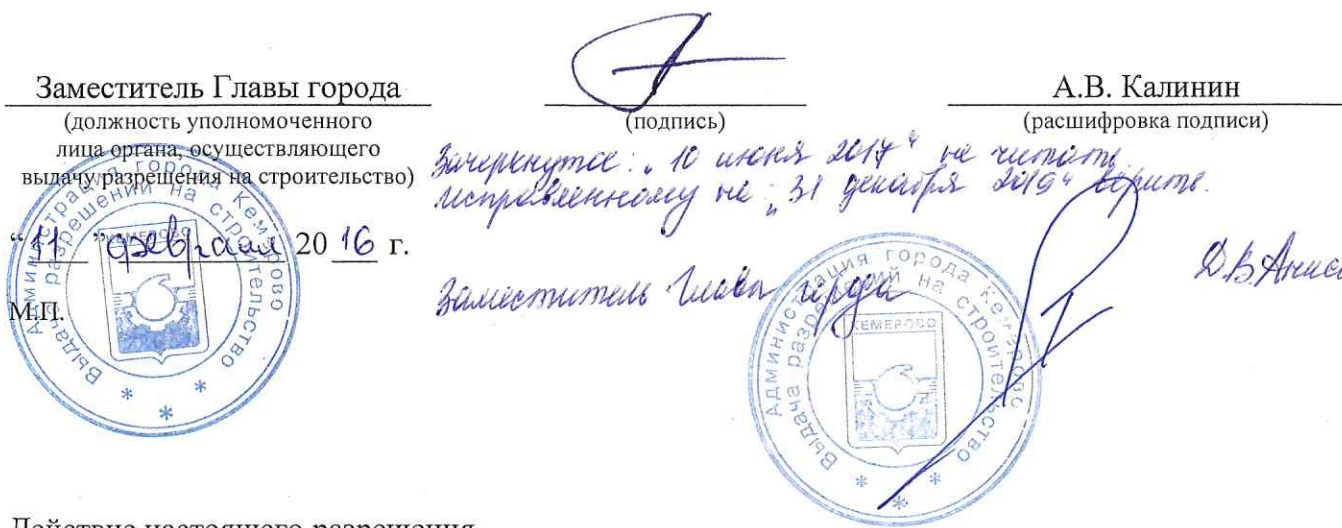 Заместитель Главы города
(должность уполномоченного
лица органа, осуществляющего
выдачу разрешения на строительство)
(подпись)
А.В. Калинин
(расшифровка подписи)
Зачеркнутое: „10 июня 2017“ не читать
исправленному на: „31 декабря 2019“ верить.
“11” февраля 2016 г.
М.П.
Заместитель Главы города
Д.В.
Администрация города Кемерово
Выдача разрешений на строительство
КЕМЕРОВО
Администрация города Кемерово
Выдача разрешений на строительство
КЕМЕРОВО
Действие настоящего разрешения